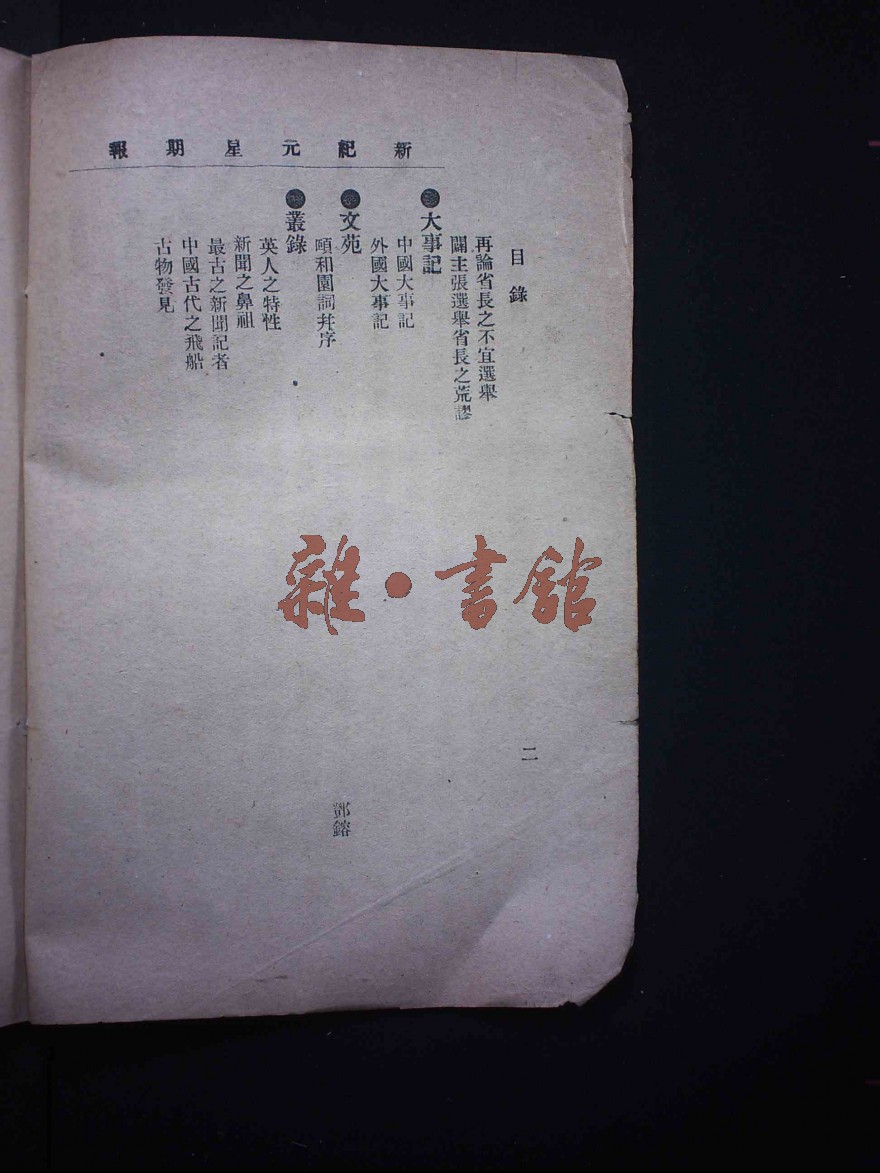 新紀元星期報
目錄
二
再論省長之不宜選舉
闢主張選舉省長之荒謬
●大事記
中國大事記
外國大事記
●文苑
頤和園詞幷序
鄧鎔
●叢錄
英人之特性
新聞之鼻祖
最古之新聞記者
中國古代之飛船
古物發見
雜·書館